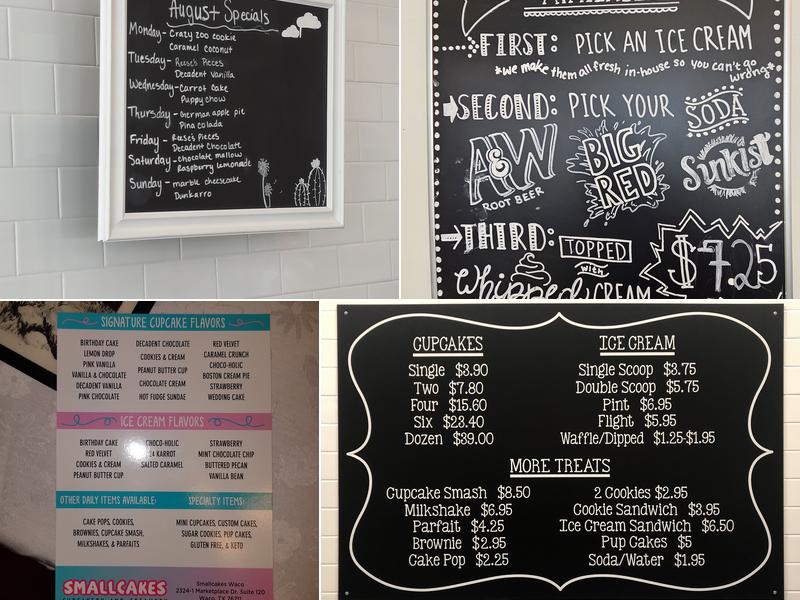 August Specials
Monday - Crazy zoo cookie
Caramel coconut
Tuesday - Reese's Pieces
Decadent Vanilla
Wednesday - Carrot Cake
Puppy chow
Thursday - German apple pie
Pina colada
Friday - Reese's Pieces
Decadent Chocolate
Saturday - Chocolate mallow
Raspberry lemonade
Sunday - marble cheesecake
Dunkarro
FIRST: PICK AN ICE CREAM
*we make them all fresh in-house so you can't go wrong*
SECOND: PICK YOUR SODA
A&W
ROOT BEER
BIG RED
Sunkist
THIRD: TOPPED with
$7.25
Whipped CREAM
SIGNATURE CUPCAKE FLAVORS
BIRTHDAY CAKE
LEMON DROP
PINK VANILLA
VANILLA & CHOCOLATE
DECADENT VANILLA
PINK CHOCOLATE
DECADENT CHOCOLATE
COOKIES & CREAM
PEANUT BUTTER CUP
CHOCOLATE CREAM
HOT FUDGE SUNDAE
RED VELVET
CARAMEL CRUNCH
CHOCO-HOLIC
BOSTON CREAM PIE
STRAWBERRY
WEDDING CAKE
ICE CREAM FLAVORS
BIRTHDAY CAKE
RED VELVET
COOKIES & CREAM
PEANUT BUTTER CUP
CHOCO-HOLIC
KARROT
SALTED CARAMEL
STRAWBERRY
MINT CHOCOLATE CHIP
BUTTERED PECAN
VANILLA BEAN
OTHER DAILY ITEMS AVAILABLE:
CAKE POPS, COOKIES,
BROWNIES, CUPCAKE SMASH,
MILKSHAKES, & PARFAITS
SPECIALTY ITEMS:
MINI CUPCAKES, CUSTOM CAKES,
SUGAR COOKIES, PUP CAKES,
GLUTEN FREE, & KETO
SMALLCAKES
Smallcakes Waco
2324-1 Marketplace Dr. Suite 120
Waco, TX 76711
CUPCAKES
Single $3.90
Two $7.80
Four $15.60
Six $23.40
Dozen $39.00
ICE CREAM
Single Scoop $3.75
Double Scoop $5.75
Pint $6.95
Flight $5.95
Waffle/Dipped $1.25-$1.95
MORE TREATS
Cupcake Smash $8.50
Milkshake $6.95
Parfait $4.25
Brownie $2.95
Cake Pop $2.25
2 Cookies $2.95
Cookie Sandwich $3.95
Ice Cream Sandwich $6.50
Pup Cakes $5
Soda/Water $1.95